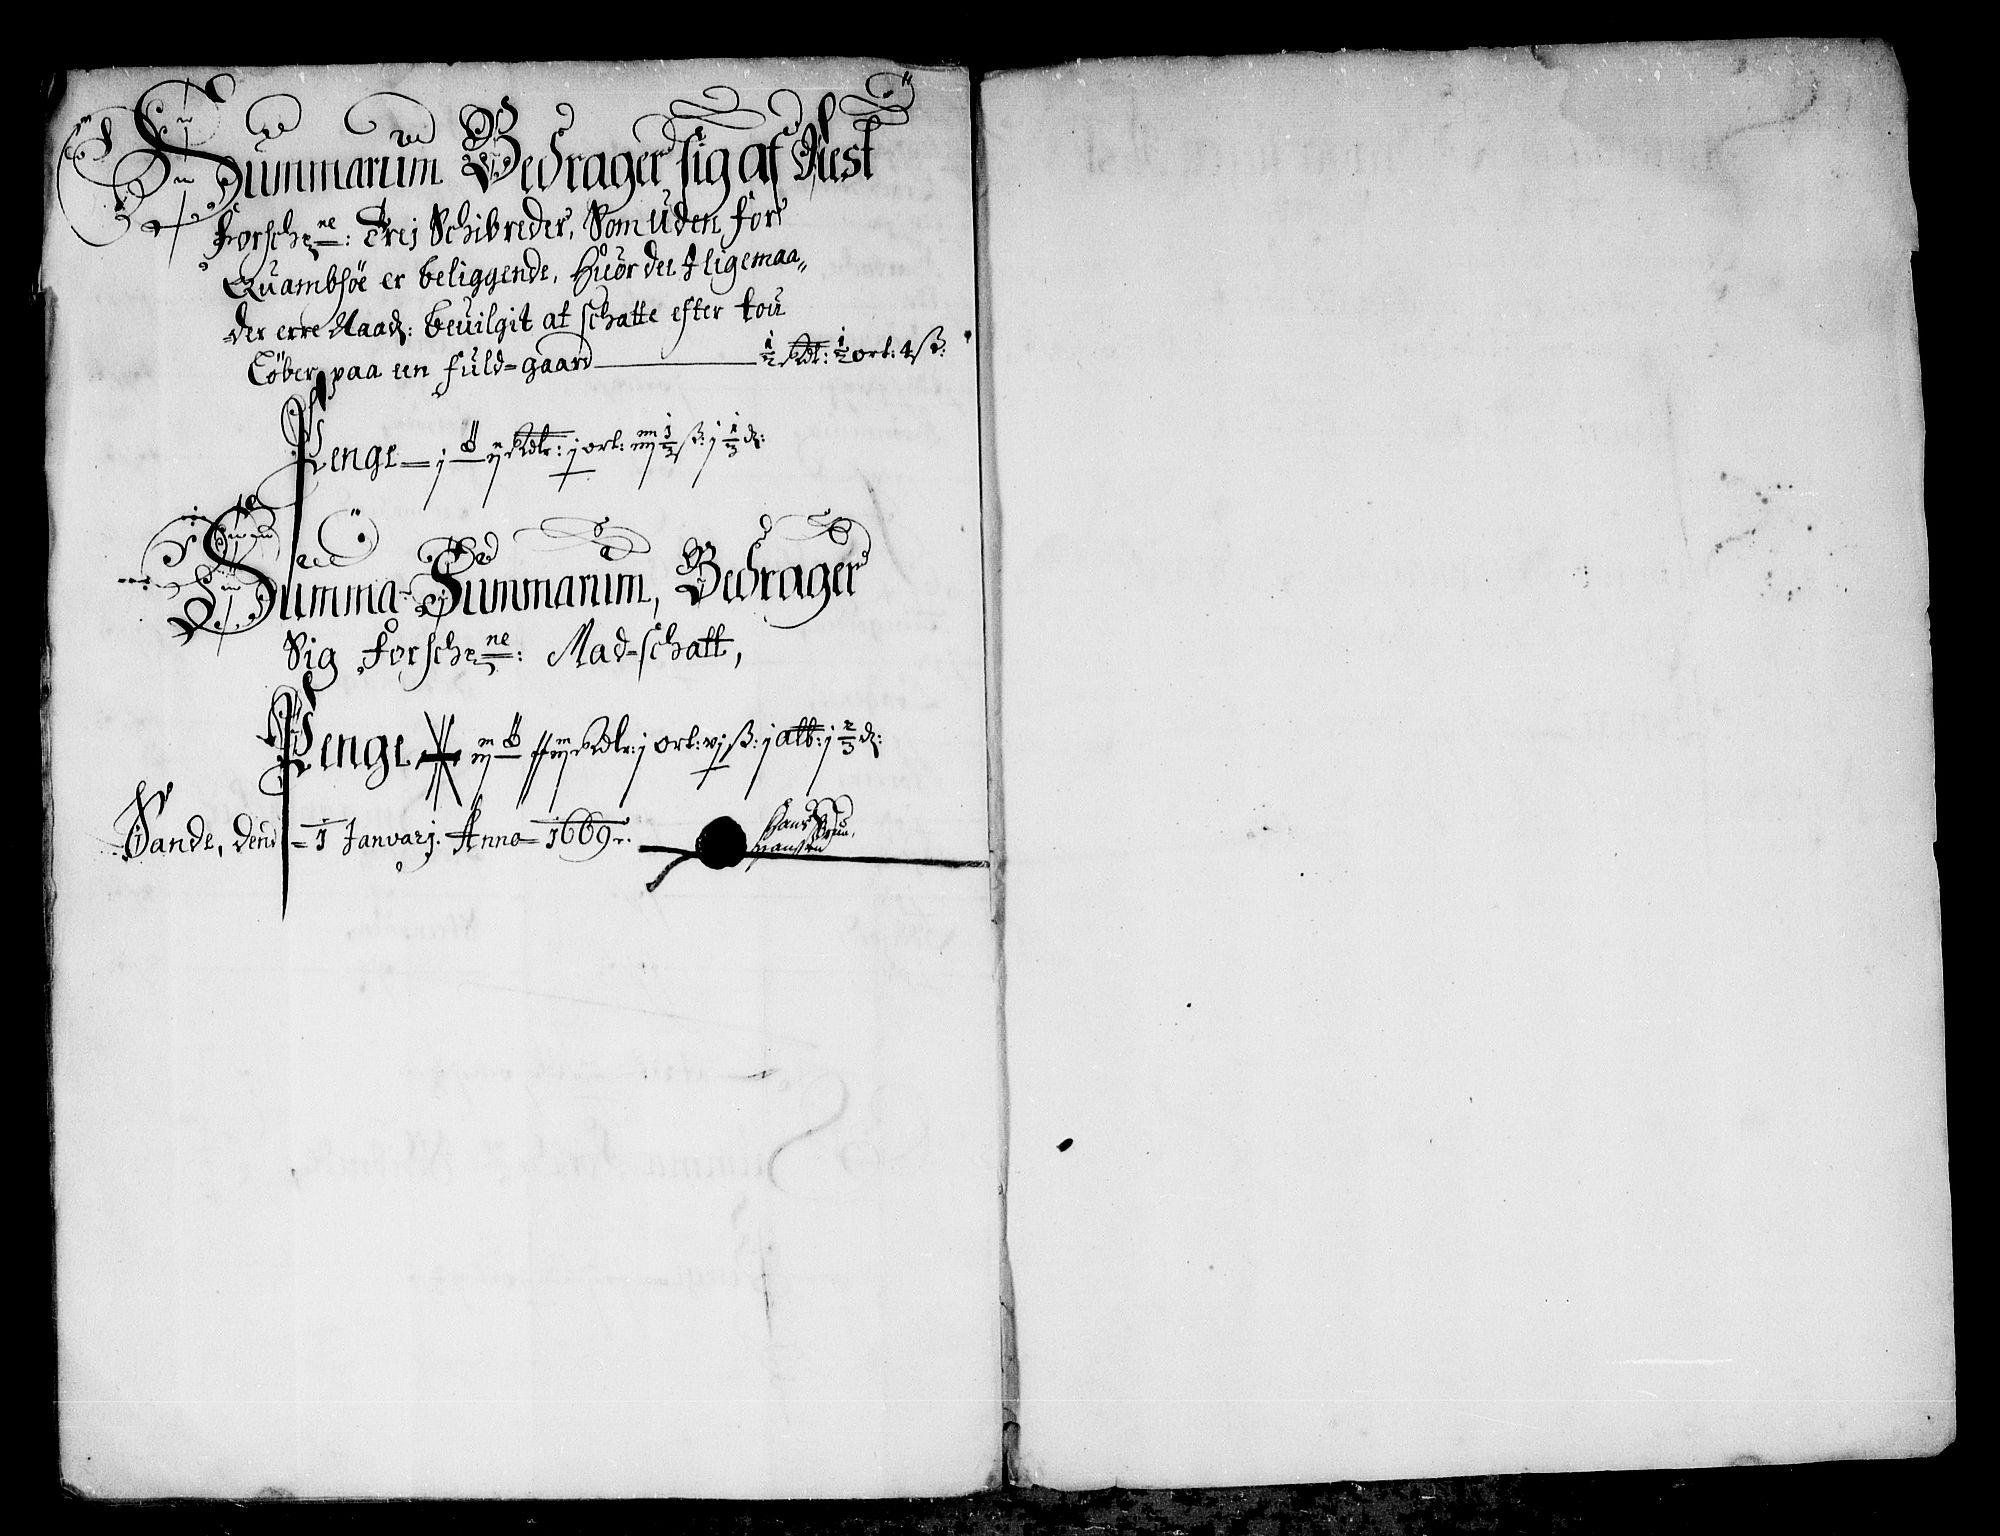 Summarum Bedrager sig af Næst
Forsch: ne: Trej Schibreder, Som uden for
Quambsöe er beliggende, Huor det I ligemaa„
der erre Naad: beuilgit at schatte efter tou
Löber paa een fuld=gaard — ½ Rdl: ½ ort: 4 ß:
Penge — j ort: ß: j ⅓ d:
Summa Summarum, Bedrager
Sig Forsch: ne: Mad=schatt,
Penge Rdlr: j ort: vj ß: j alb: j ⅔ d:
Sande, den 1 Januarj. Anno 1669.
Hans
Hanssen